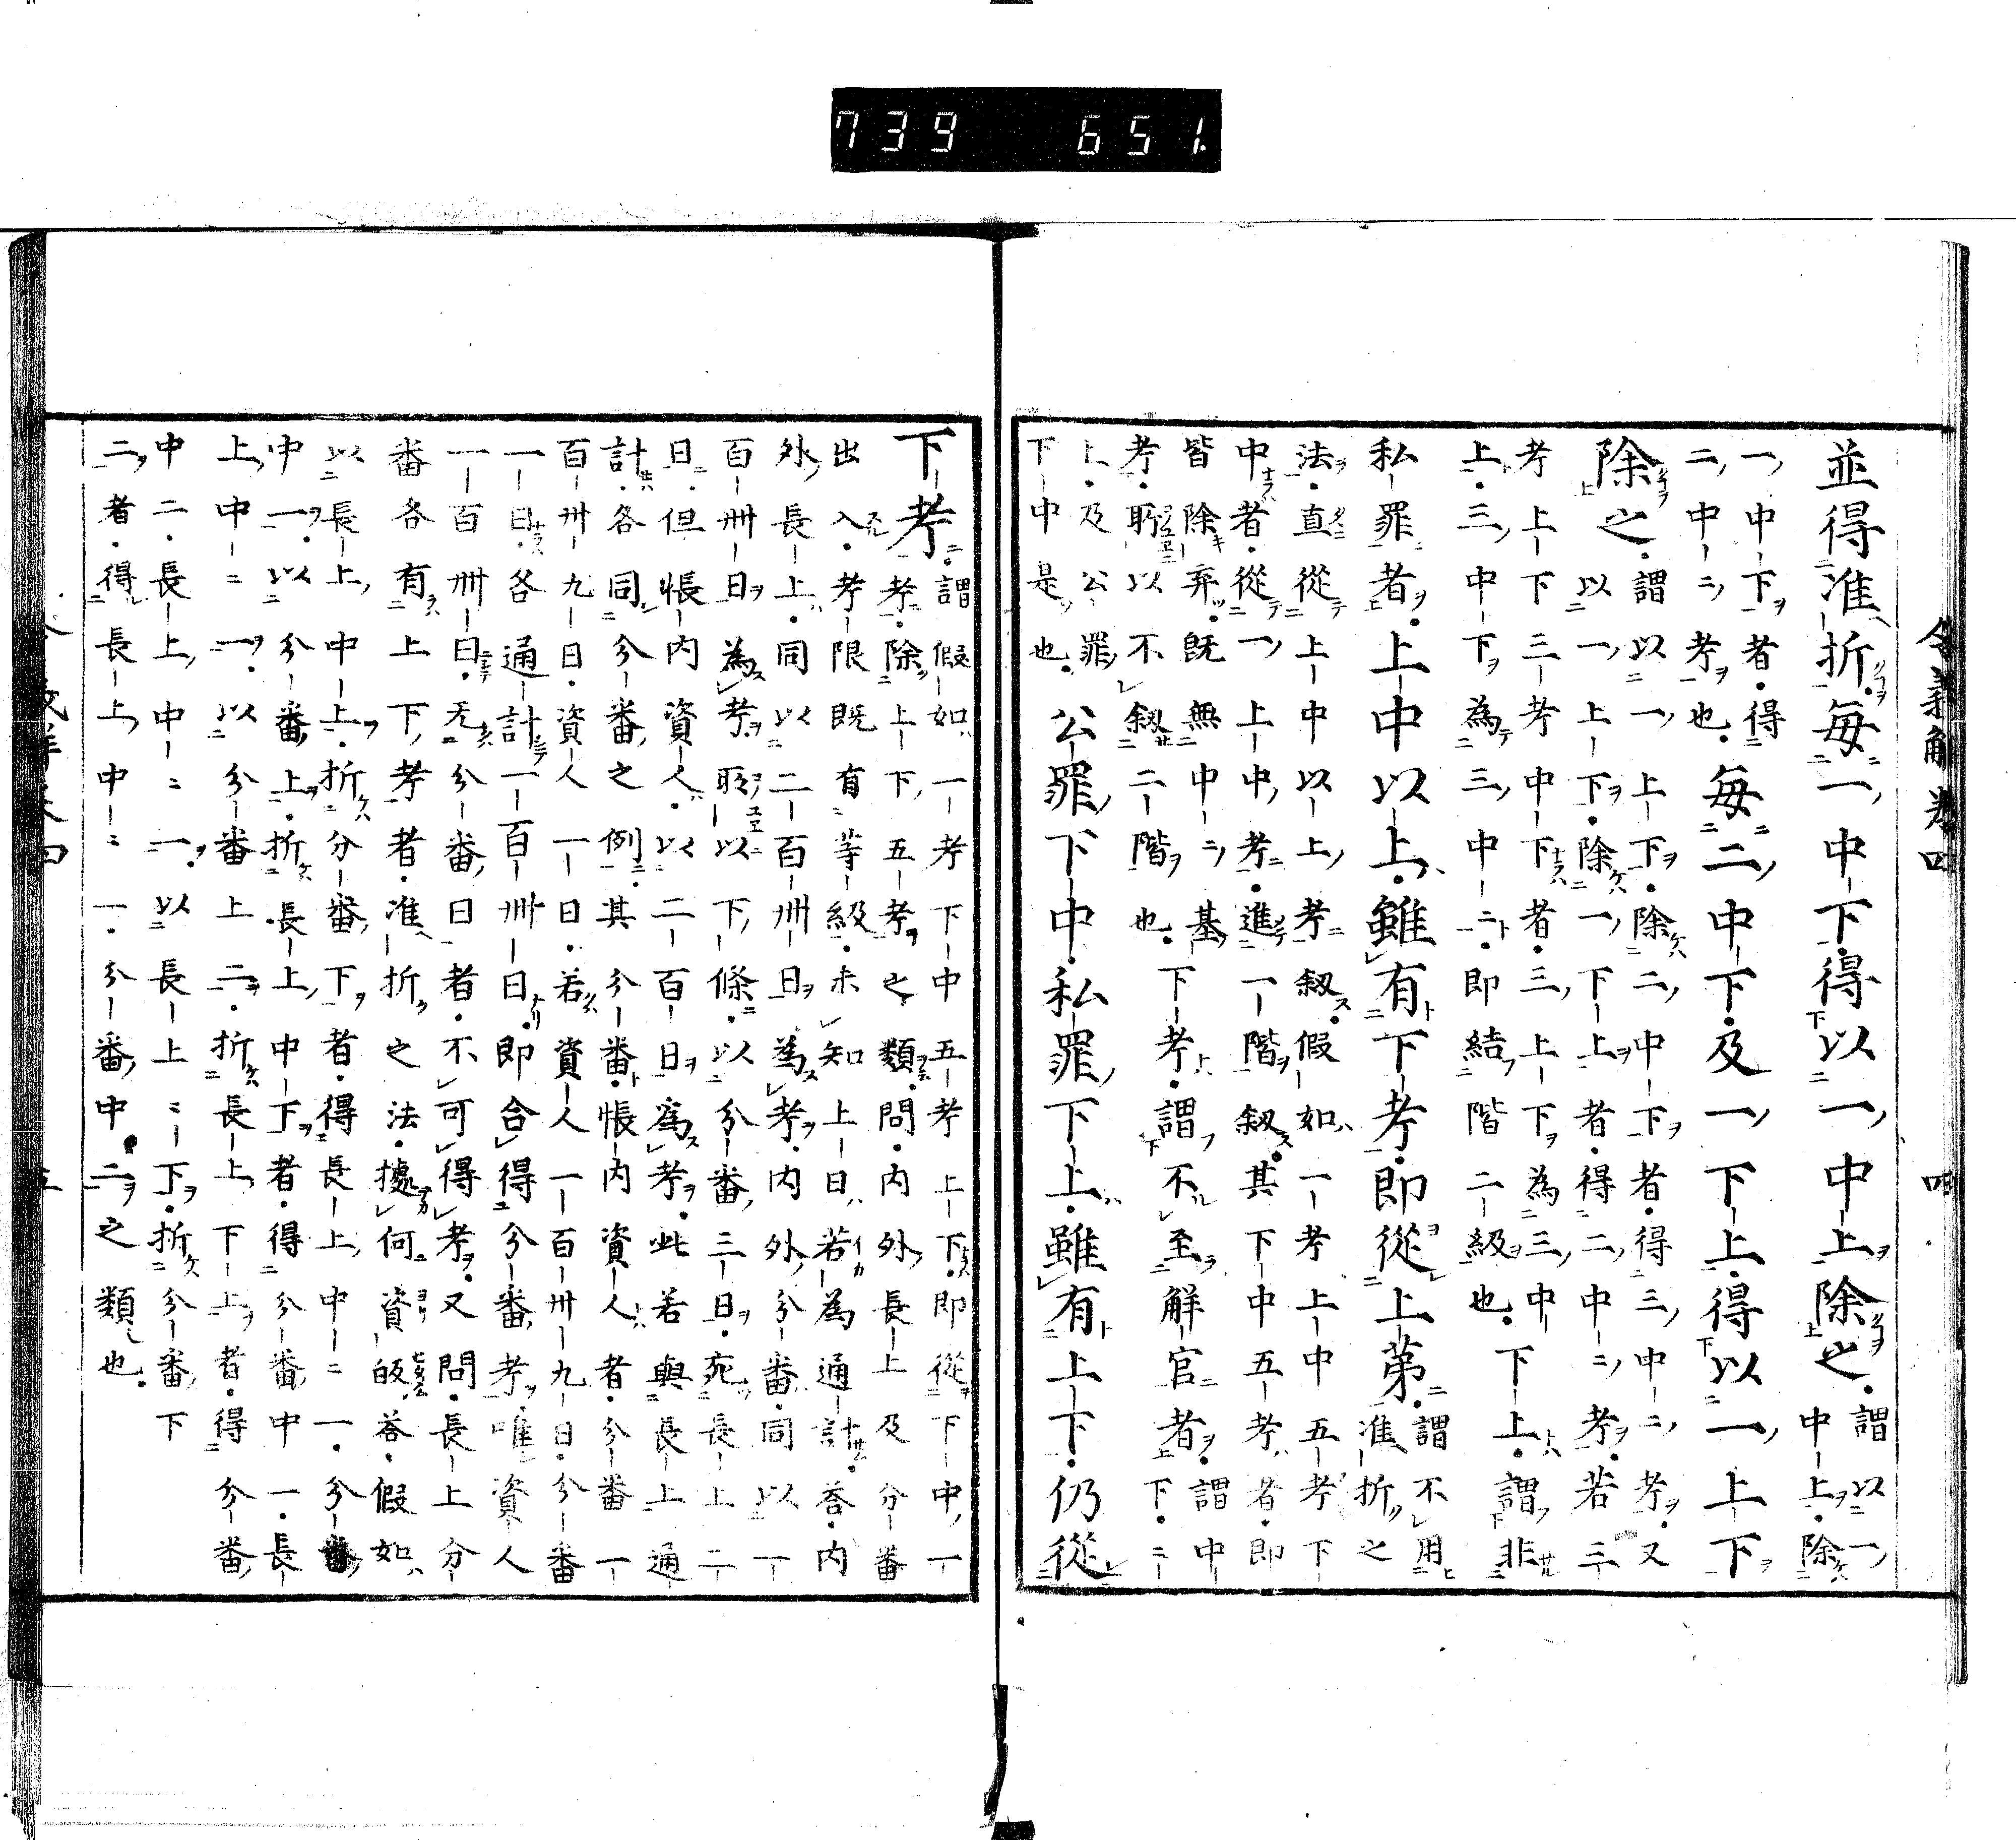 739 651
令義解巻四 四
並得准折毎一中下得以一中上除之謂以一中上除
一中下者得二中中考也毎二中下及一下上得以一上下
除之謂以一上下除二中下者得三中中考又以一上下除一下上者得二中中考若三
考上下三考中下者三上下為三中上三中下為三中中即結階二級也下上謂非
私罪者上中以上雖有下考即従上第謂不用准折之
法直従上中以上考叙仮如一考上中五考下
中者従一上中考進一階叙其下中五考者即
皆除弃既無中中基下考謂不至解官者謂中
考所以不叙二階也下二
上及公罪
下中是也公罪下中私罪下上雖有上下仍従
下考謂仮如一考下中五考上下即従下中一
考除上下五考之類問内外長上及分番
出入考限既有等級未知上日若為通計答内
外長上同以二百卌日為考内外分番同以一
百卌日為考所以下条以分番三日宛長上二
日但帳内資人以二百日為考此若与長上通
計各同分番之例其分番帳内資人者分番一
百卅九日資人一日若資人一百卅九日分番
一日各通計一百卌日即合得分番考唯資人
一百卌日无分番日者不可得考又問長上分
番各有上下考者准折之法拠何資皈答仮如
以長上中上折分番下者得長上中中一分番
中一以分番上折長上中下者得分番中一長
上中中一以分番上二折長上下上者得分番
中二長上中中一以長上上下折分番下
二者得長上中中一分番中二之類也